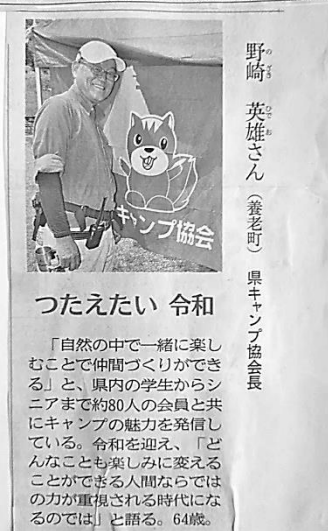 野崎 英雄さん（養老町） 県キャンプ協会長
のざき ひでお
キャンプ協会
つたえたい 令和
「自然の中で一緒に楽し
むことで仲間づくりができ
る」と、県内の学生からシ
ニアまで約80人の会員と共
にキャンプの魅力を発信し
ている。令和を迎え、「ど
んなことも楽しみに変える
ことができる人間ならでは
の力が重視される時代にな
るのでは」と語る。64歳。